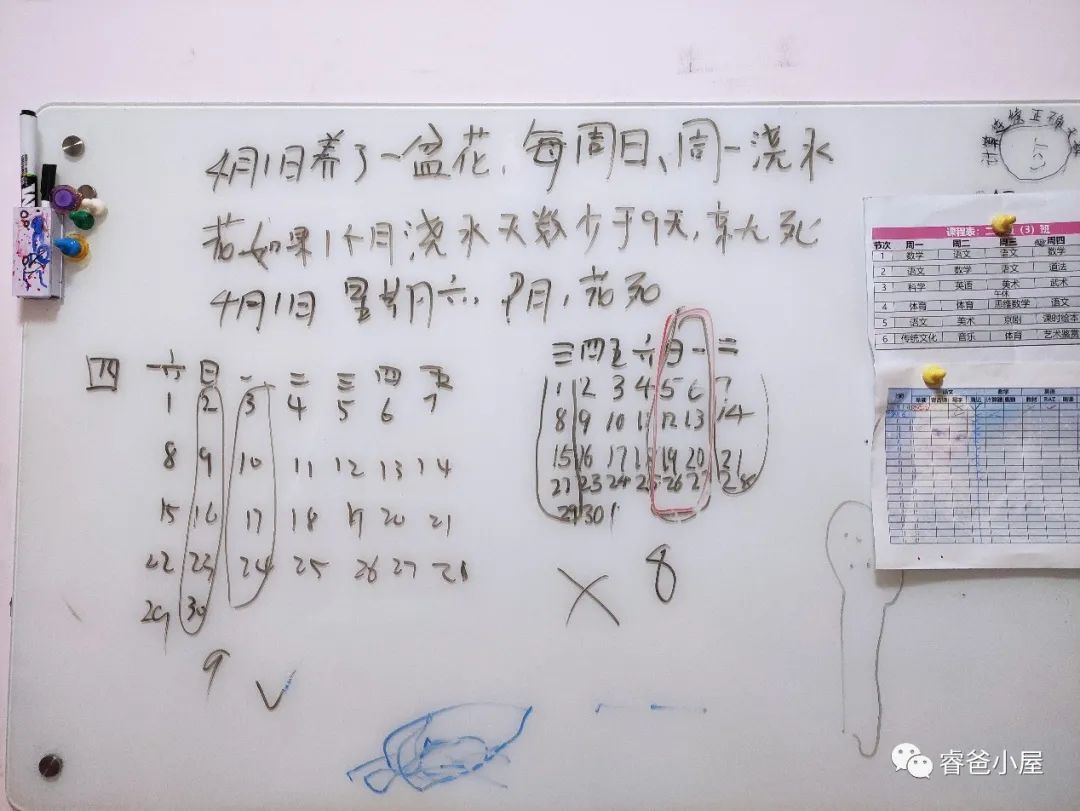 4月1日养了一盆花,每周日、周一浇水
花如果1个月浇水天数少于9天,就大死
4月1日 星期六,?月,花死
四
六 日 一 二 三 四 五
1 2 3 4 5 6 7
8 9 10 11 12 13 14
15 16 17 18 19 20 21
22 23 24 25 26 27 28
29 30
9
三 四 五 六 日 一 二
1 2 3 4 5 6 7
8 9 10 11 12 13 14
15 16 17 18 19 20 21
23 24 25 26 27 28
29 30
8
课程表: (3)班
节次 周一 周二 周三 周四
1 数学 语文 语文 数学
2 语文 数学 语文 道法
3 科学 英语 美术 武术
午休
4 体育 体育 思维数学 语文
5 语文 美术 京剧 课时绘本
6 传统文化 音乐 体育 艺术鉴赏
睿爸小屋